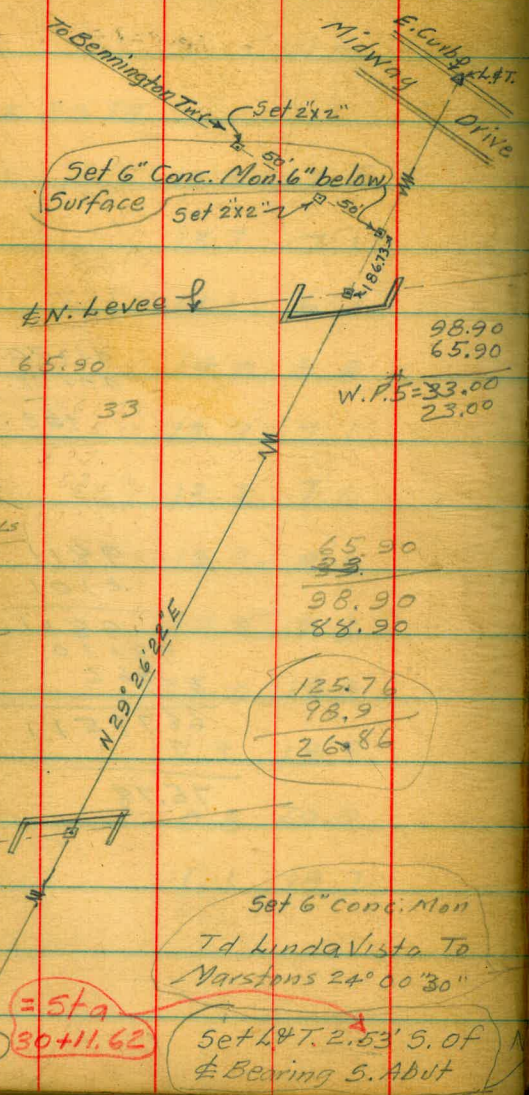 To Bennington Twr
E. Curb
L&T.
Midway
Drive
Set 2"x2"
50'
Set 6" Conc. Mon. 6" below
Surface
Set 2"x2"
50'
186.73
℄ N. Levee
98.90
65.90
W.P.5=33.00
23.00
65.90
33
65.90
98.90
88.90
N 29° 26' 22" E
125.76
98.9
26.86
Set 6" Conc. Mon
Td Linda Vista To
Marstons 24° 00" 30"
= Sta
30+11.62
Set L&T. 2.53' S. of
℄ Bearing S. Abut